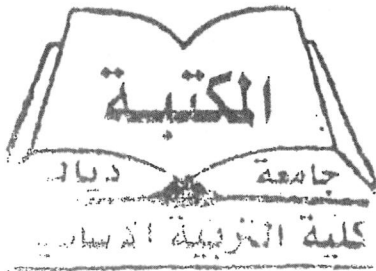 المكتبة
جامعة ديالى
كلية التربية الاساسية